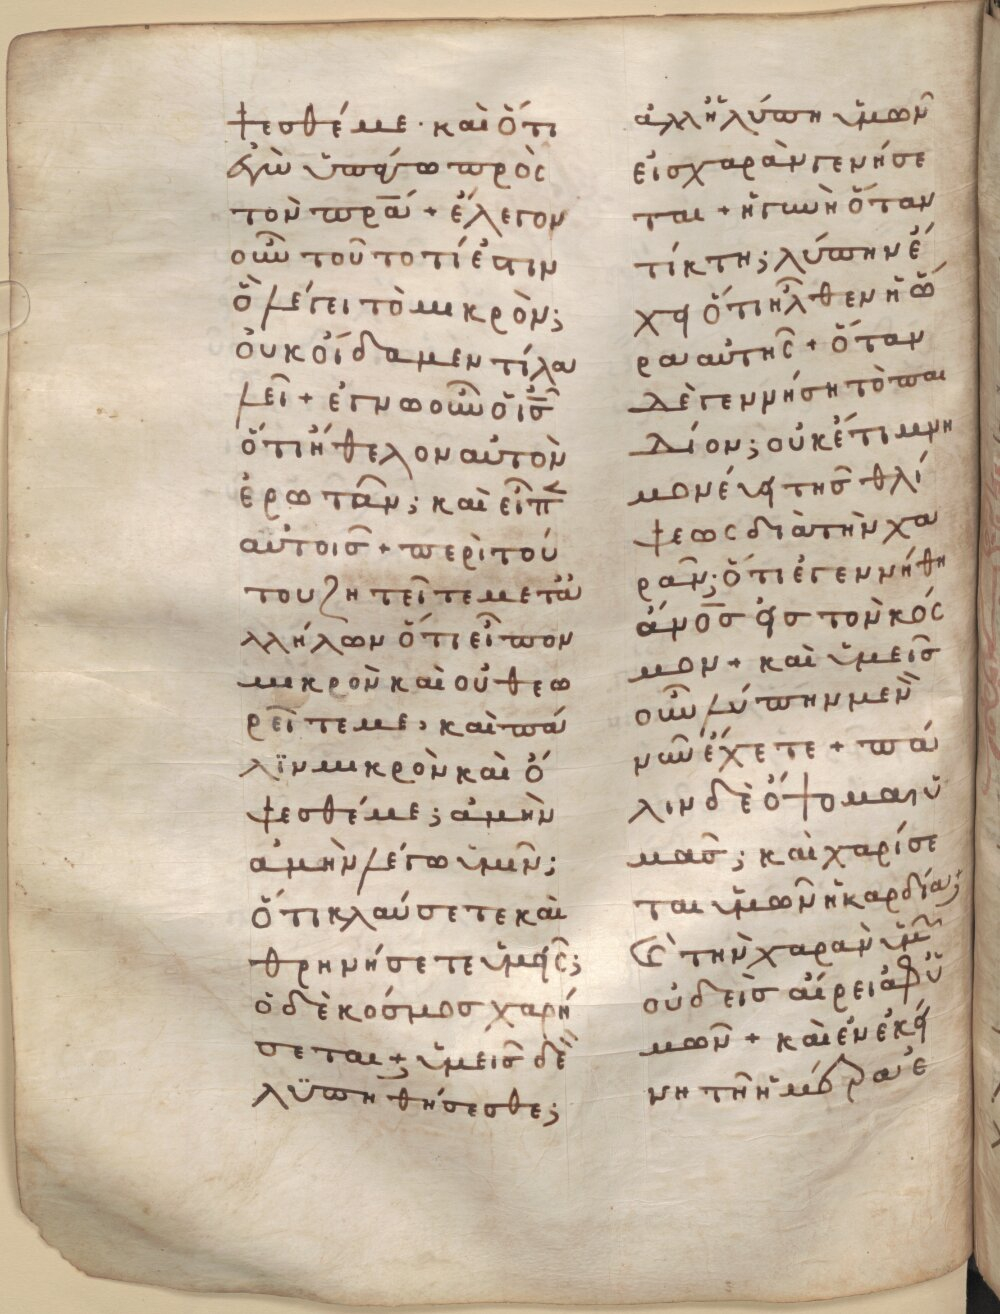 ψεσθέ με· καὶ ὅτι
ἐγὼ ὑπάγω πρὸς
τὸν πρ̅α̅ + ἔλεγον
οὖν τοῦτο τί ἐστιν
ὃ λέγει τὸ μικρὸν;
οὐκ οἴδαμεν τί λα
λεῖ + ἔγνω οὖν ὁ ι̅ς̅
ὅτι ἤθελον αὐτὸν
ἐρωτᾶν; καὶ εἶπεν
αὐτοῖς + περὶ τού
του ζητεῖτε μετἀ
λλήλων ὅτι εἶπον
μικρὸν καὶ οὐ θεω
ρεῖτέ με, καὶ πά
λϊν μικρὸν καὶ ὄ
ψεσθέ με; ἀμὴν
ἀμὴν λέγω ὑμῖν;
ὅτι κλαύσετε καὶ
θρηνήσετε ὑμεῖς;
ὁ δὲ κόσμος χαρή
σεται +; ὑμεῖς δὲ
λϋπηθήσεσθε;
ἀλλ ἡ λύπη ὑμῶν
εἰς χαρὰν γενήσε
ται + ἡ γυνὴ ὅταν
τίκτη; λύπην ἔ
χει ὅτι ἦλθεν ἡ ὥ
ρα αὐτῆς + ὅταν
δὲ γεννήση τὸ παι
δίον; οὐκέτι μνη
μονεύει τῆς θλί
ψεως διὰ τὴν χα
ρὰν; ὅτι ἐγεννήθη
ἄν̅ο̅ς εἰς τὸν κόσ
μον + καὶ ὑμεῖς
οὖν λύπην μὲν
νῦν ἔχετε + πά
λιν δὲ ὄψομαι ὑ
μᾶς; καὶ χαρίσε
ται ὑμῶν ἡ καρδία;+
καὶ τὴν χαρὰν ὑμῶν
οὐδεὶς αἴρει ἀφ ὑ
μῶν + καὶ ἐν ἐκεί
νη τῆ ἡμέρα ἐ